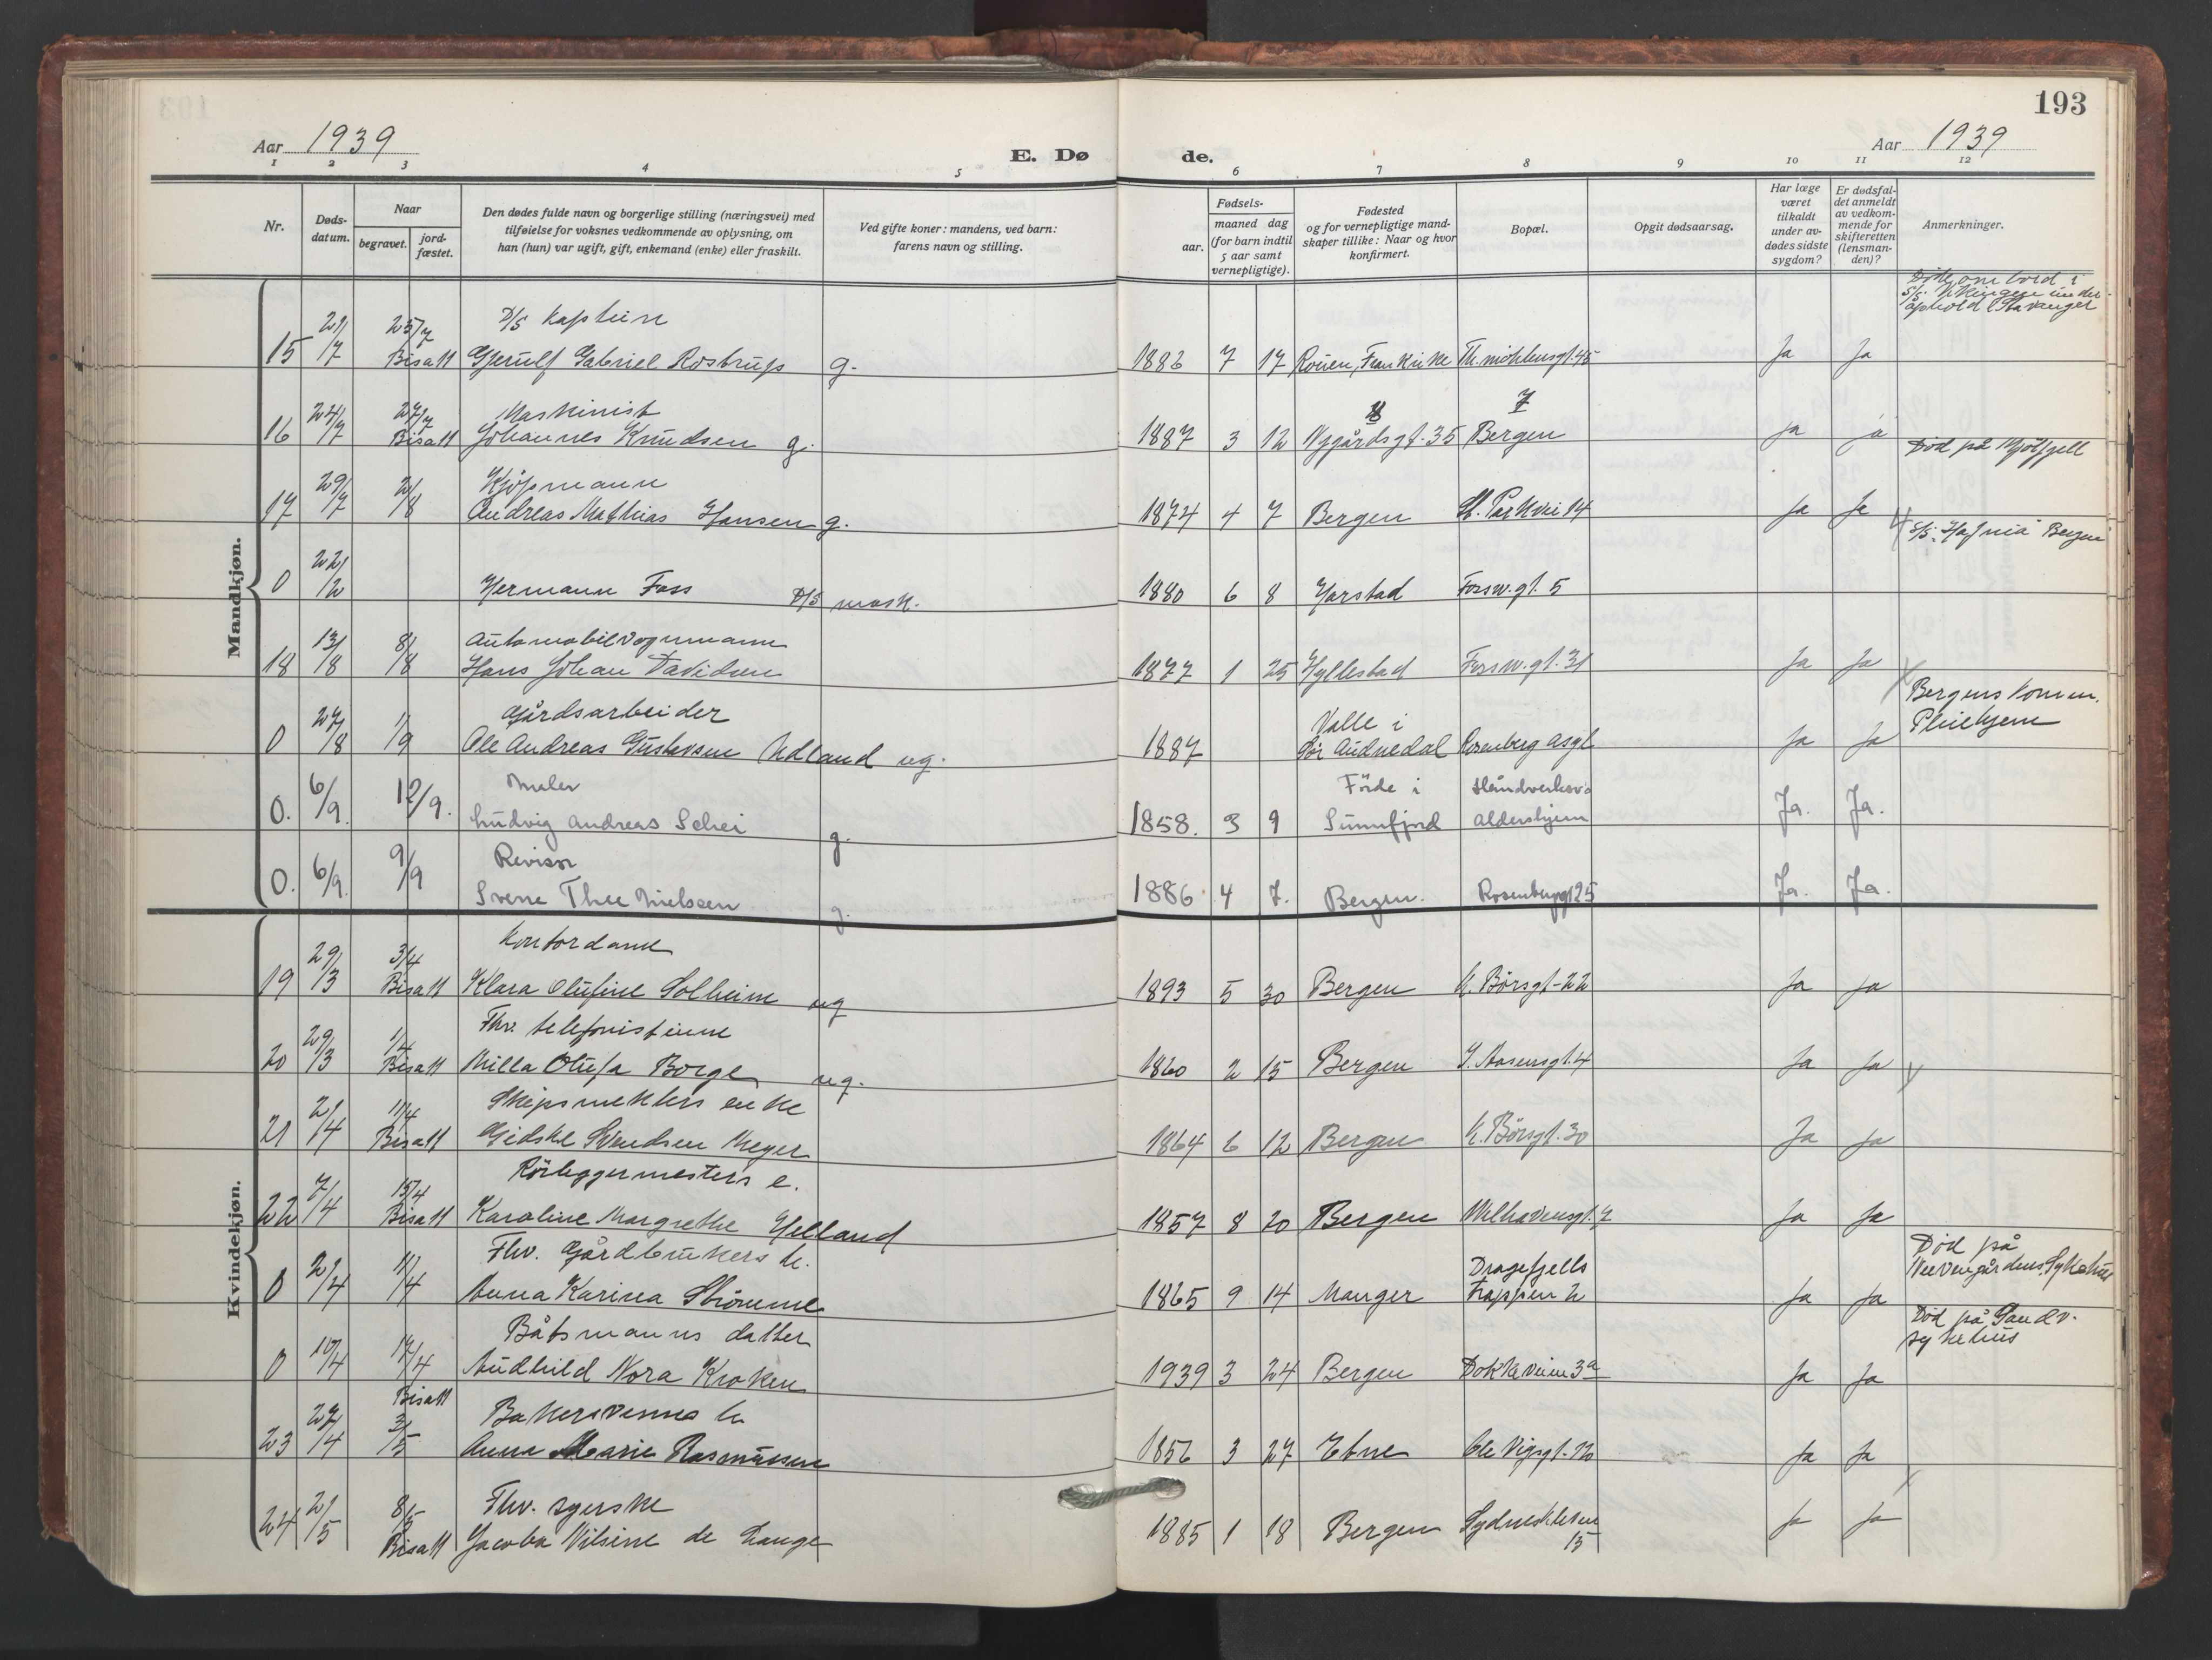 193
Aar 1939
Aar 1939
E. Dø
de.
1 2 3 4 5 6 7 8 9 10 11 12
Nr.
Døds-
datum.
Naar
begravet.
jord-
fæstet.
Den dødes fulde navn og borgerlige stilling (næringsvei) med
tilføielse for voksnes vedkommende av oplysning, om
han (hun) var ugift, gift, enkemand (enke) eller fraskilt.
Ved gifte koner: mandens, ved barn:
farens navn og stilling.
Fødsels-
aar.
maaned dag
(for barn indtil
5 aar samt
vernepligtige).
Fødested
og for vernepligtige mand-
skaper tillike: Naar og hvor
konfirmert.
Bopæl.
Opgit dødsaarsag.
Har læge
været
tilkaldt
under av-
dødes sidste
sygdom?
Er dødsfal-
det anmeldt
av vedkom-
mende for
skifteretten
(lensman-
den)?
Anmerkninger.
Mandkjøn.
D/S kaptein
15 21/7 25/7 Bisatt Gjerulf Gabriel Rostrup g. 1882 7 17 Rouen, Frankrike Th. möhlensgt. 45 Ja Ja
ombord i
S/S
ophold i Stavanger
Maskinist
16 24/7 27/7 Bisatt Johannes Knudsen g. 1887 3 12 Nygårdsgt. 35 Bergen Ja Ja
8 7
Kjøpmann
17 29/7 2/8 Andreas Mathias Hansen g. 1874 4 7 Bergen St. Parkvei 14 Ja Ja
Død på Mjølfjell
0 22/2 Hermann Foss D/S mask. 1880 6 8 Harstad Forsw. gt. 5
S/S "Hafnia" Bergen
Automobilvognmann
18 13/8 8/8 Hans Johan Davidsen 1877 1 25 Hyllestad Forsw. gt. 31 Ja Ja
Gårdsarbeider
0 27/8 1/9 Ole Andreas Gustavsen Udland ug. 1887 Valle i
Sør Audnedal Rosenberg asyl Ja Ja
Bergens komm.
Pleiehjem
Maler
0. 6/9. 12/9. Ludvig Andreas Schei g. 1858. 3 9 Förde i
Sunnfjord Håndverkers
Aldershjem Ja. Ja.
Revisor
0. 6/9. 9/9 Sverre Thue Nielsen g. 1886 4 7. Bergen. Rosenberggt 25 Ja. Ja.
Kvindekjøn.
Kontordame
19 29/3 3/4 Bisatt Klara Olufine Solheim ug 1893 5 30 Bergen K. Börsgt. 22 Ja Ja
Fhv. telefonistinne
20 29/3 1/4 Bisatt Milla Olufa Borge ug. 1860 2 15 Bergen I. Aasensgt. 4 Ja Ja
Skipsmeklers enke
21 2/4 11/4 Bisatt Gidske Svendsen Meyer 1864 6 12 Bergen K. Börsgt. 30 Ja Ja
Rörleggermesters e.
22 7/4 15/4 Bisatt Karoline Margrethe Helland 1857 8 20 Bergen Welhavensgt. Ja Ja
Fhv. Gårdbrukers h.
0 2/4 11/4 Anna Karina Strömme 1865 9 14 Manger Dragefjells
Trappen 2 Ja Ja
Død på
Neevengårdens Sykehus
Båtsmanns datter
0 10/4 17/4 Audhild Nora Kroken 1939 3 24 Bergen Dokkeveien 3a Ja Ja
Død på Sandv.
sykehus
Bakersvenns h
23 27/4 Bisatt 3/5 Anna Marie Rasmussen 1856 3 27 Etne Ole Vigsgt. Ja Ja
Fhv. syerske
24 2/5 8/5 Bisatt Jacoba Nilsine de Lange 1885 1 18 Bergen Sydneskleven
15 Ja Ja